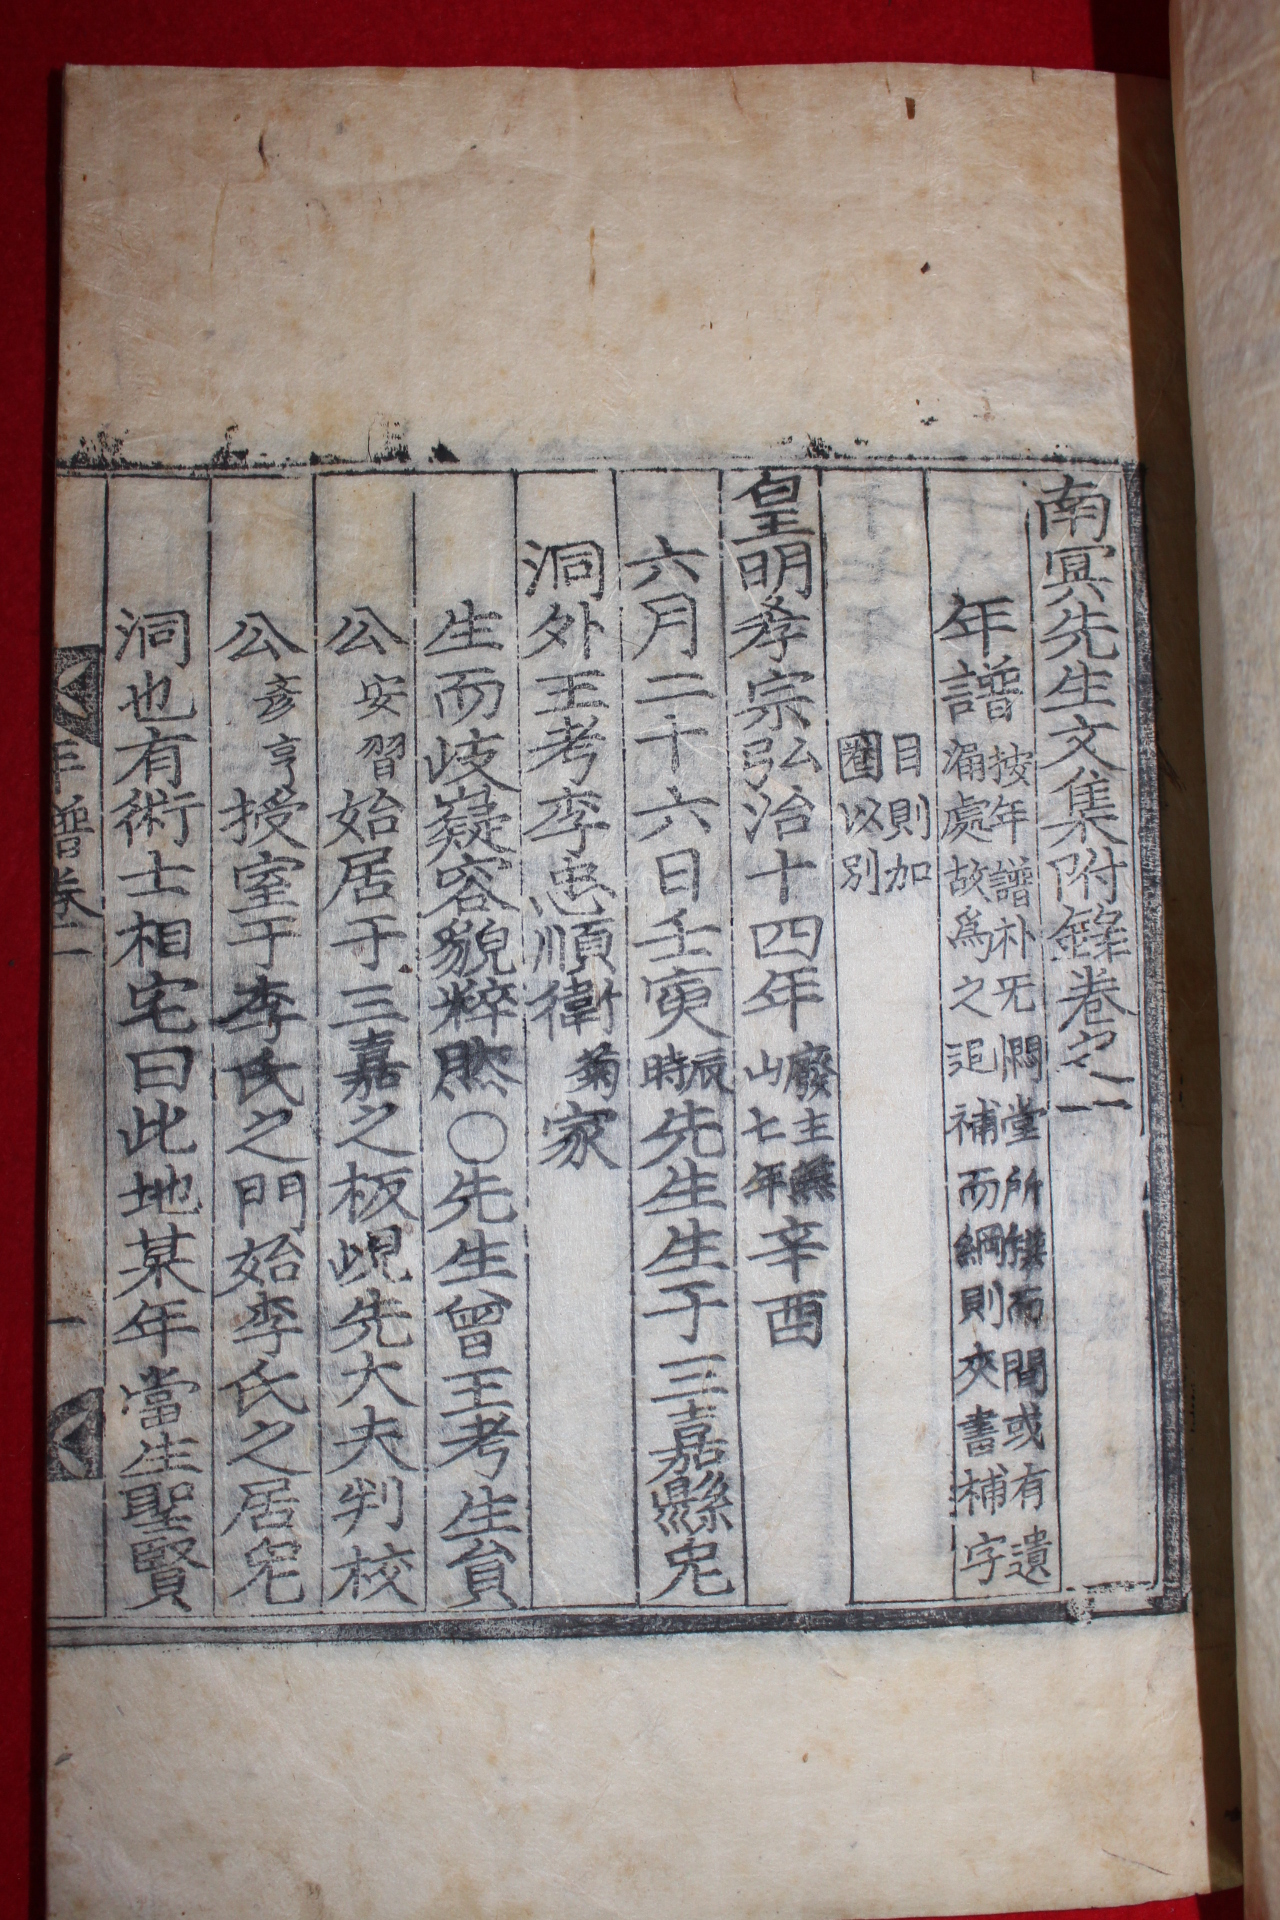 南冥先生文集附錄卷之二
年譜
按年譜朴旡悶堂所撰而間或有遺
漏處故爲之追補而綱則夾書補字
目則加
圈以別
皇明孝宗弘治十四年廢主燕山七年辛酉
六月二十六日壬寅辰時先生生于三嘉縣兔
洞外王考李忠順衛菊家
生而岐嶷容貌粹然○先生曾王考生員
公安習始居于三嘉之板峴先大夫判校
公彦亨授室于李氏之門始李氏之居兔
洞也有術士相宅曰此地某年當生聖賢
年譜卷二
一